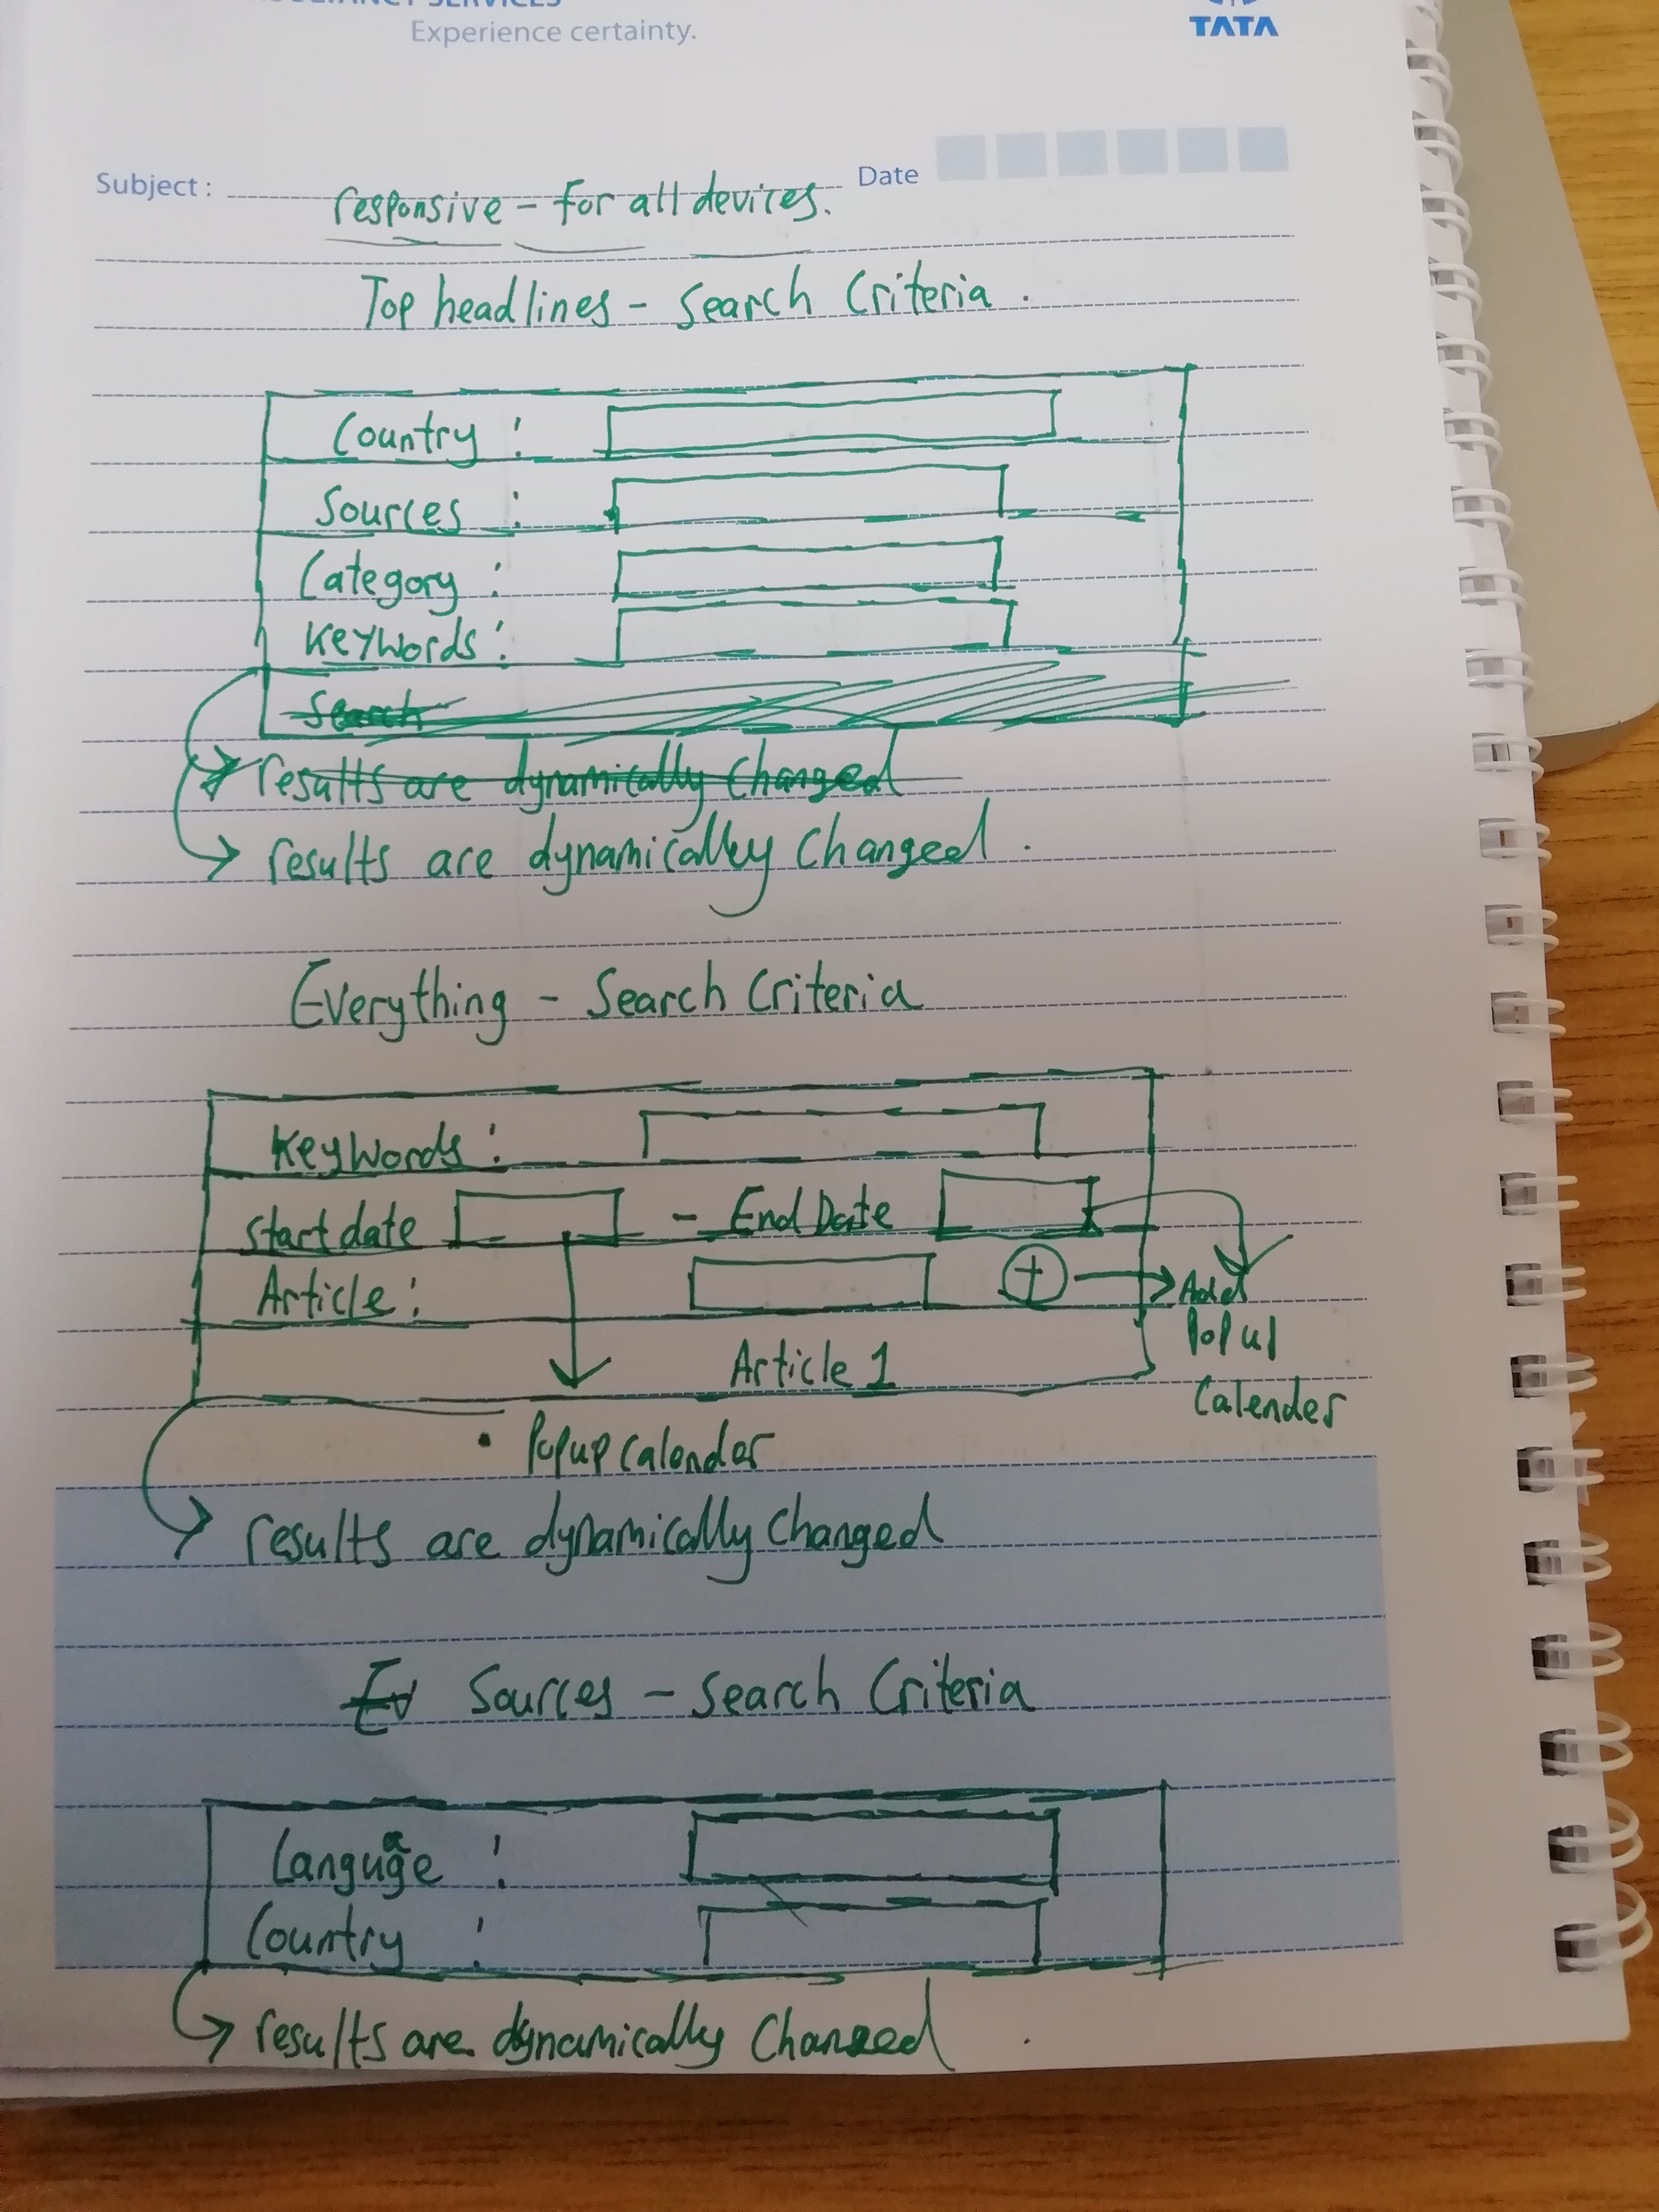 Experience certainty.
TATA
Subject :
Date
responsive - for all devices.
Top headlines - Search Criteria .
Country :
Sources :
Category :
Keywords :
Search
results are dynamically changed
results are dynamically changed .
Everything - Search Criteria
Keywords :
Start date - End Date
Article : + Add
Popup
Article 1
Calender
Popup Calender
results are dynamically changed
Ev Sources - Search Criteria
Language :
Country :
results are dynamically changed .